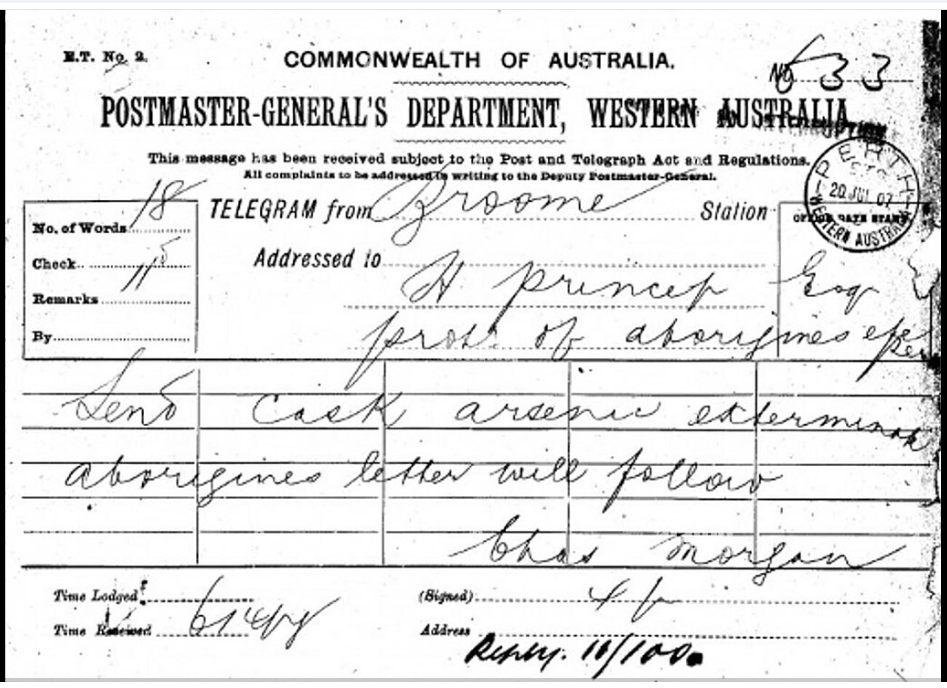 E.T. No. 2.
COMMONWEALTH OF AUSTRALIA.
No 633
POSTMASTER-GENERAL'S DEPARTMENT, WESTERN AUSTRALIA
This message has been received subject to the Post and Telegraph Act and Regulations.
All complaints to be addressed in writing to the Deputy Postmaster-General.
PERTH
20 JUL 07
WESTERN AUSTRALIA
No. of Words 18
Check
Remarks
By
TELEGRAM from Broome Station
OFFICE DATE STAMP
Addressed to
H princep Esq
prot of aborigines
Send Cask arsenic exterminate
aborigines letter will follow
Chas Morgan
Time Lodged
Time Received
(Signed)
Address
Reply. 10/100